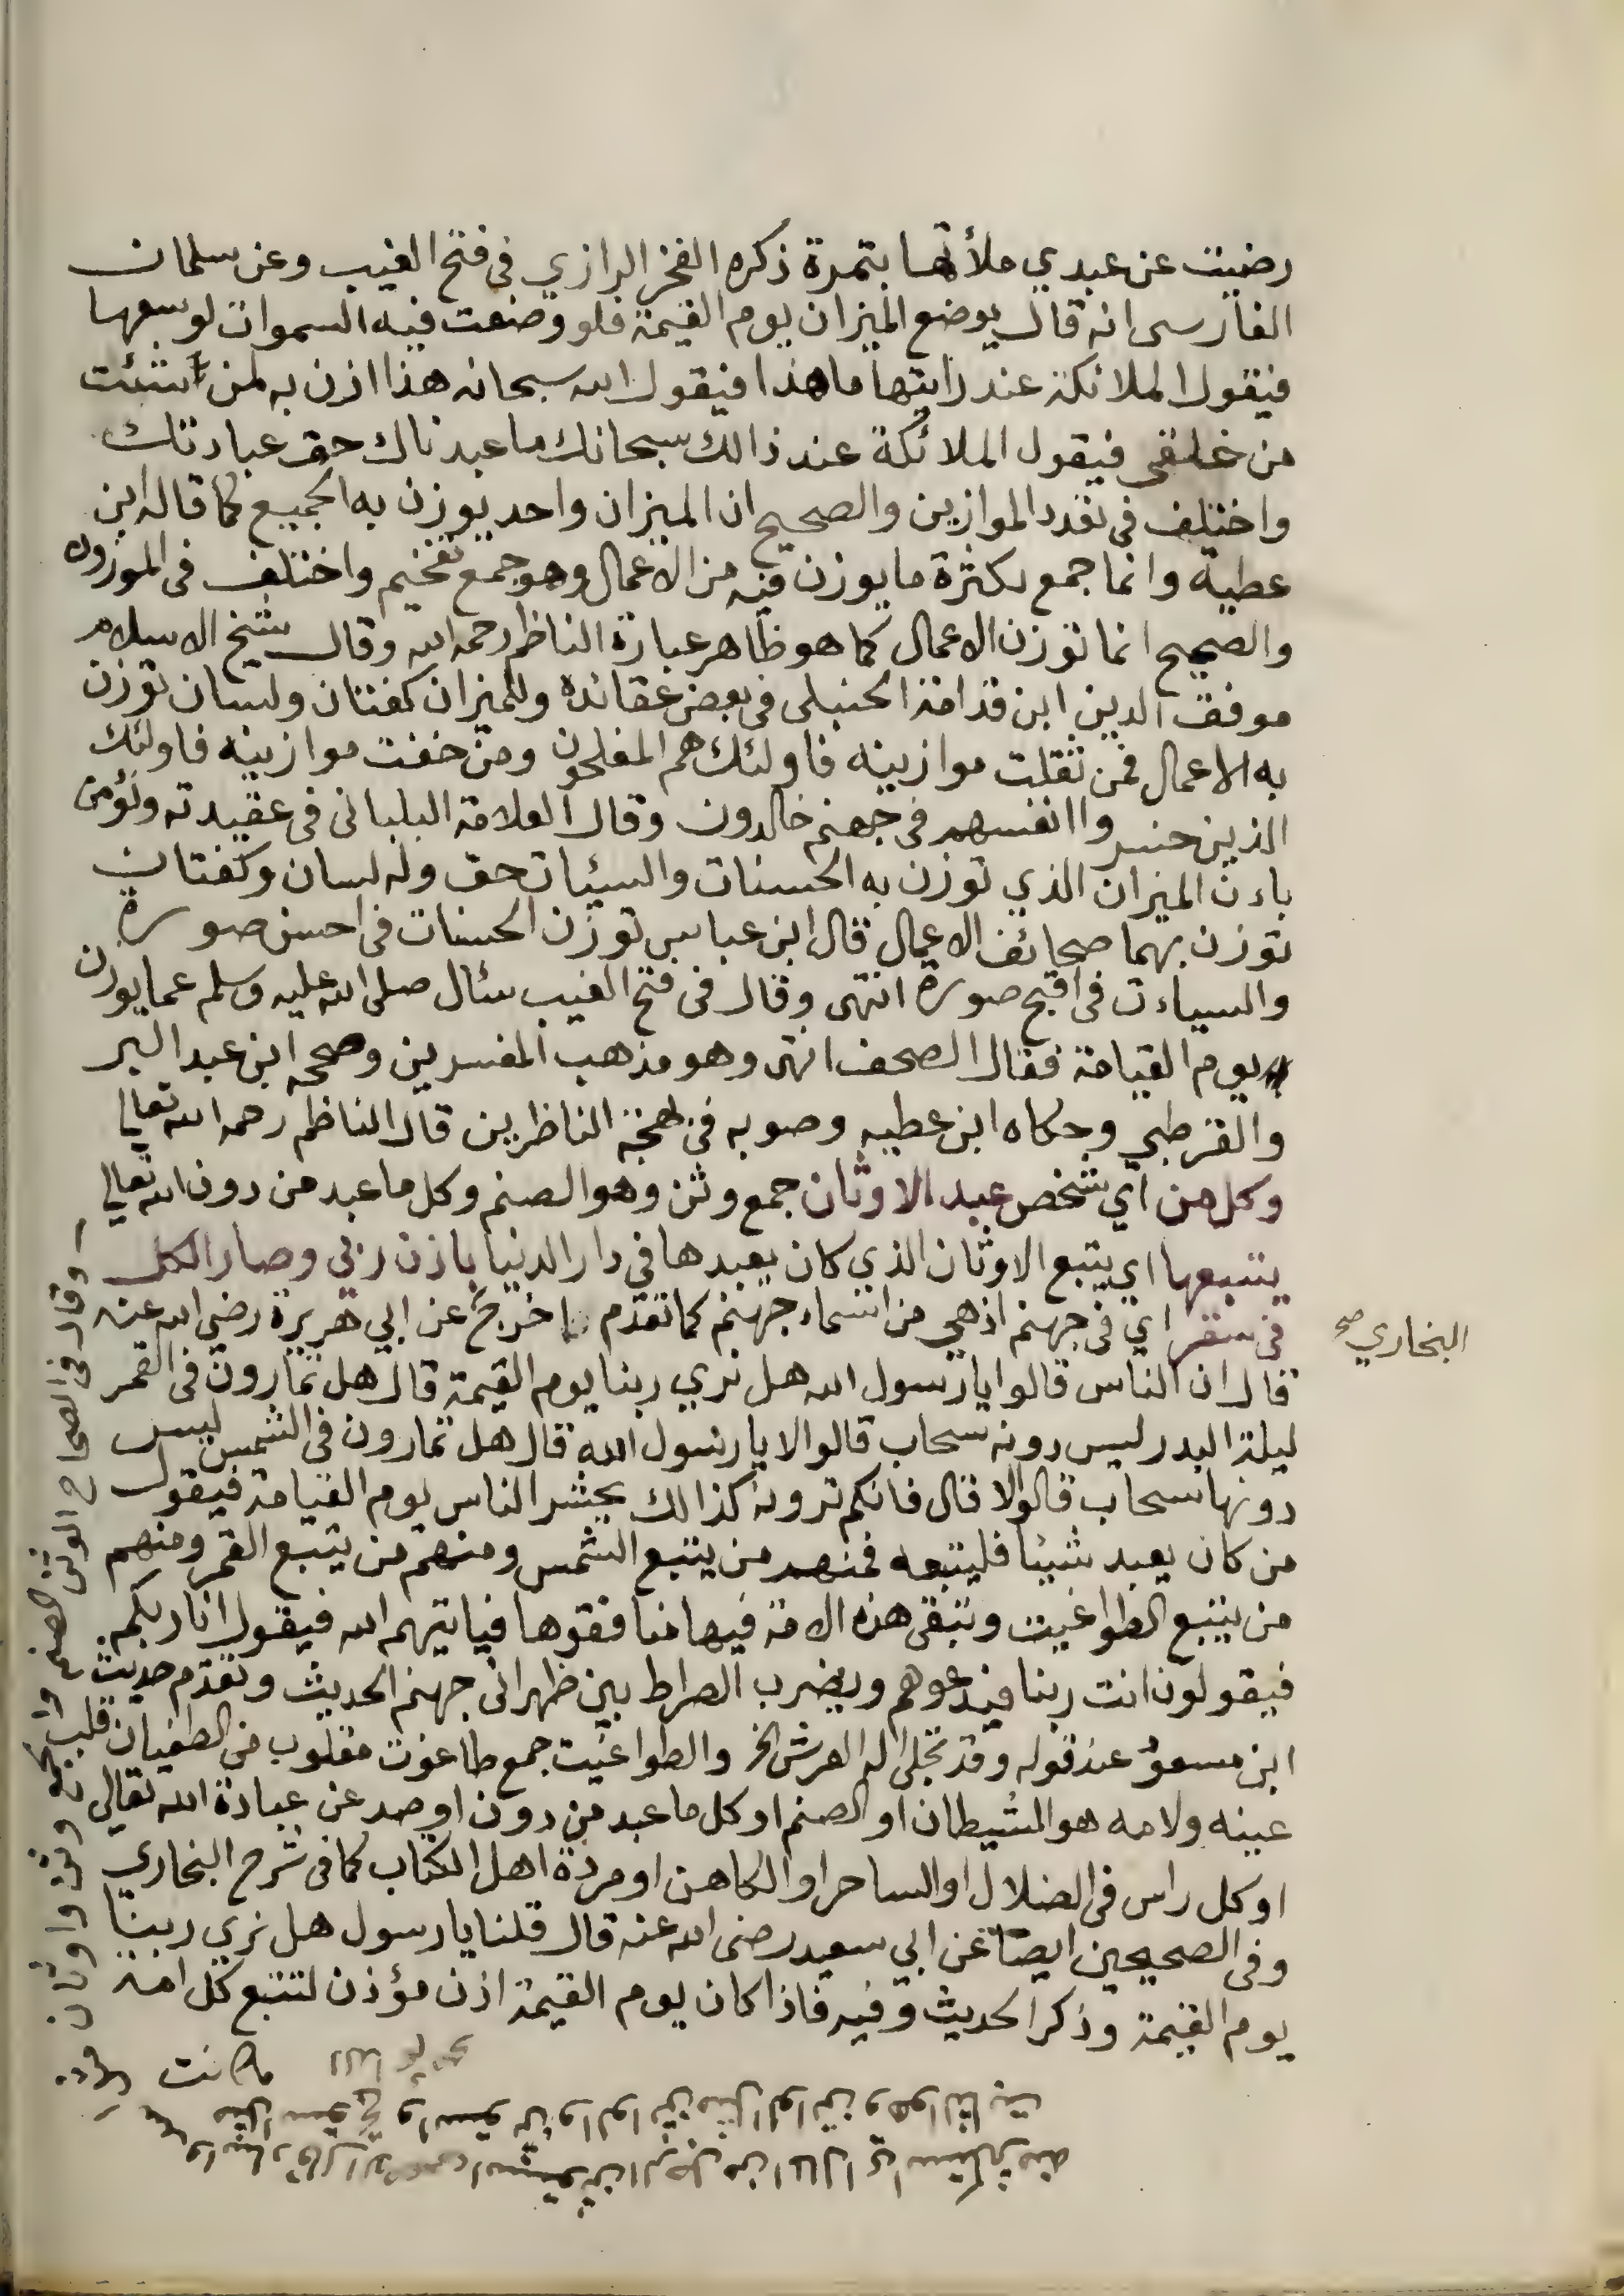 رضيت عن عبدي ملأتها بتمرة ذكره الفخر الرازي في فتح الغيب وعن سلمان
الفارسى انه قال يوضع الميزان يوم القيمة فلو وضعت فيه السموات لوسعها
فيقول الملائكة عند رايتها ما هذا فيقول الله سبحانه هذا ازن به لمن شئت
من خلقي فيقول الملائكة عند ذالك سبحانك ما عبدناك حق عبادتك
واختلف في تعدد الموازين والصحيح ان الميزان واحد يوزن به الجميع كما قاله ابن
عطية وانما جمع لكثرة ما يوزن فيه من الاعمال وهو جمع تفخيم واختلف في الموزون
والصحيح انما توزن الاعمال كما هو ظاهر عبارة الناظم رحمه الله وقال شيخ الاسلام
موفق الدين ابن قدامة الحنبلى في بعض عقائده وللميزان كفتان ولسان توزن
به الاعمال فمن ثقلت موازينه فاولئك هم المفلحون ومن خفت موازينه فاولئك
الذين خسروا انفسهم في جهنم خالدون وقال العلامة البلبانى في عقيدته ونؤمن
باءن الميزان الذي توزن به الحسنات والسيئات حق وله لسان وكفتان
توزن بهما صحائف الاعمال قال ابن عباس توزن الحسنات في احسن صورة
والسياءت في اقبح صورة انتهى وقال في فتح الغيب سئال صلى الله عليه وسلم عما يوزن
يوم القيامة فقال الصحف انتهى وهو مذهب المفسرين وصححه ابن عبد البر
والقرطبي وحكاه ابن عطيه وصوبه في بهجة الناظرين قال الناظم رحمه الله تعالى
وكل من اي شخص عبد الاوثان جمع وثن وهو الصنم وكل ما عبد من دون الله تعالى
يتبعها اي يتبع الاوثان الذي كان يعبدها في دار الدنيا باذن ربى وصار الكل
في سقر اي في جهنم اذهي من اسماء جهنم كما تقدم اخرج عن ابي هريرة رضي الله عنه
البخاري صح
قال ان الناس قالوا يا رسول الله هل نري ربنا يوم القيمة قال هل تمارون في القمر
ليلة البدر ليس دونه سحاب قالوا لا يا رسول الله قال هل تمارون في الشمس ليس
دونها سحاب قالوا لا قال فانكم ترونه كذالك يحشر الناس يوم القيامة فيقول
من كان يعبد شيئا فليتبعه فمنهم من يتبع الشمس ومنهم من يتبع القمر ومنهم
من يتبع الطواغيت وتبقى هذه الامة فيها منافقوها فياتيهم الله فيقول انا ربكم
فيقولون انت ربنا فيدعوهم ويضرب الصراط بين ظهرانى جهنم الحديث وتقدم حديث
ابن مسعود عند قوله وقد تجلى اله العرش الخ والطواغيت جمع طاغوت مقلوب من الطغيان قلب
عينه ولامه هو الشيطان او الصنم او كل ما عبد من دون او صد عن عبادة الله تعالي
او كل راس في الضلال او الساحر او الكاهن او مردة اهل الكتاب كما في شرح البخاري
وفي الصحيحين ايضا عن ابي سعيد رضى الله عنه قال قلنا يا رسول هل نري ربنا
يوم القيمة وذكر الحديث وفيه فاذا كان يوم القيمة اذن مؤذن لتتبع كل امة
ما كانت
وقال في الصحاح الوثن الصنم والجمع وثن واوثان